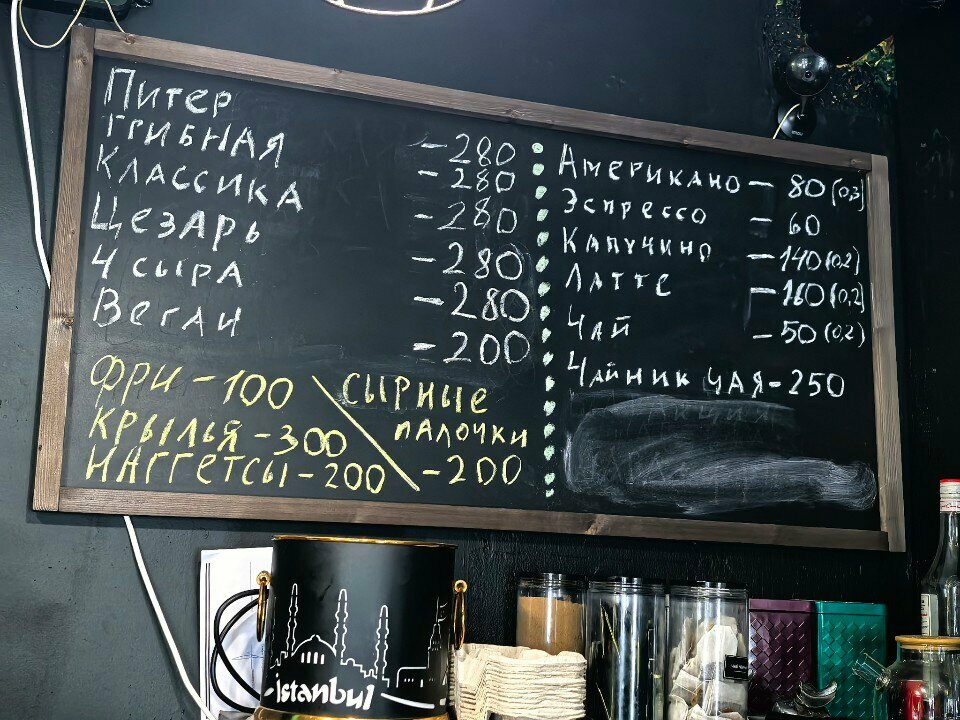 Питер - 280
ГРИБНАЯ - 280
КЛАССИКА - 280
ЦЕЗАРЬ - 280
4 СЫРА - 280
ВЕГАН - 200
ФРИ - 100
КРЫЛЬЯ - 300
НАГГЕТСЫ - 200
СЫРНЫЕ
ПАЛОЧКИ
- 200
АМЕРИКАНО - 80 (0,3)
ЭСПРЕССО - 60
КАПУЧИНО - 140 (0,2)
ЛАТТЕ - 160 (0,2)
ЧАЙ - 50 (0,2)
ЧАЙНИК ЧАЯ - 250
istanbul